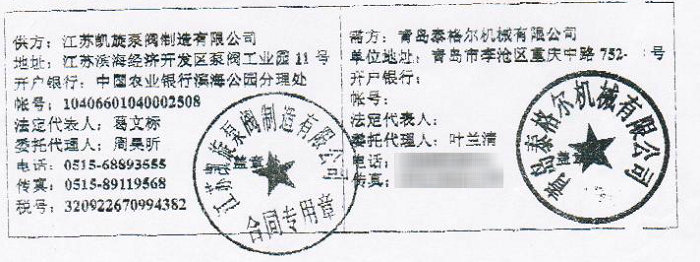 供方：江苏凯旋泵阀制造有限公司
地址：江苏滨海经济开发区泵阀工业园 11 号
开户银行：中国农业银行滨海公园分理处
帐号：10406601040002508
法定代表人：葛文标
委托代理人：周昊昕
电话：0515-68893655
传真：0515-89119568
税号：320922670994382
江苏凯旋泵阀制造有限公司
合同专用章
需方：青岛泰格尔机械有限公司
单位地址：青岛市李沧区重庆中路 752-
开户银行：
帐号：
法定代表人：
委托代理人：叶兰清
电话：
传真：
青岛泰格尔机械有限公司